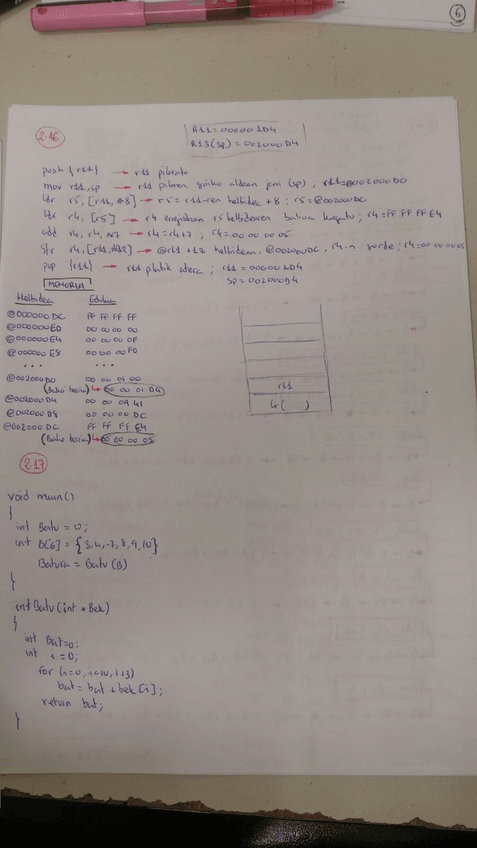 6
2.16
R11=000001D4
R13(sp)=002000D4
push {r11} → r11 pilaratu
mov r11,sp → r11 pilaren goiko aldean jarri (sp); r11=@002000D0
ldr r5,[r11,#8] → r5=r11-ren helbidea +8; r5=@002000DC
ldr r4,[r5] → r4 r5 helbidearen balioa ; r4=FF FF FF E4
r4, r4, #7 → r4=r4+7; r4=00 00 00 05
str r4,[r11,#12] → @r11 +12 helbidean, @002000DC, r4-n gorde; r4=00 00 00 05
pop {r11} → r11 pilatik atera; r11=000001D4
SP=002000D4
MEMORIA
Helbidea Edukia
@000000DC FF FF FF FF
@000000E0 00 00 00 00
@000000E4 00 00 00 0F
@000000E8 00 00 00 F0
... ...
@002000D0 00 00 01 00
(Balio berria) → 00 00 01 D4
@002000D4 00 00 0A 41
@002000D8 00 00 00 DC
@002000DC FF FF FF E4
(Balio berria) → 00 00 00 05
r11
lr( )
2.17
void main()
{
int Batu = 0;
int B[6] = {3,4,-7,8,9,10}
Batura = Batu (B)
}
int Batu (int * Bek)
{
int Bat=0;
int i=0;
for (i=0, i<10, i+3)
bat = bat + bek [i];
return bat;
}